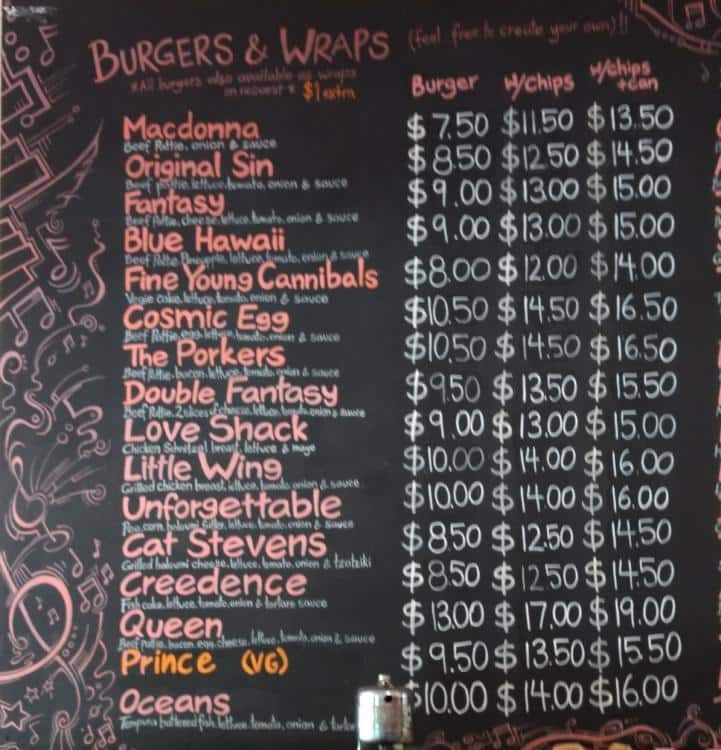 BURGERS & WRAPS (feel free to create your own)!!
*All burgers also available as wraps
on request * $1 extra
Burger W/Chips W/Chips +can
Macdonna $7.50 $11.50 $13.50
Beef Pattie, onion & sauce
Original Sin $8.50 $12.50 $14.50
Beef pattie, lettuce, tomato, onion & sauce
Fantasy $9.00 $13.00 $15.00
Beef Pattie, cheese, lettuce, tomato, onion & sauce
Blue Hawaii $9.00 $13.00 $15.00
Beef Pattie, Pineapple, lettuce, tomato, onion & sauce
Fine Young Cannibals $8.00 $12.00 $14.00
Vegie cake, lettuce, tomato, onion & sauce
Cosmic Egg $10.50 $14.50 $16.50
Beef Pattie, egg, lettuce, tomato, onion & sauce
The Porkers $10.50 $14.50 $16.50
Beef Pattie, bacon, lettuce, tomato, onion & sauce
Double Fantasy $9.50 $13.50 $15.50
Beef Pattie, 2 slices of cheese, lettuce, tomato, onion & sauce
Love Shack $9.00 $13.00 $15.00
Chicken Schnitzel breast, lettuce & mayo
Little Wing $10.00 $14.00 $16.00
Grilled chicken breast, lettuce, tomato, onion & sauce
Unforgettable $10.00 $14.00 $16.00
corn, lettuce, tomato, onion & sauce
Cat Stevens $8.50 $12.50 $14.50
Grilled haloumi cheese, lettuce, tomato, onion & tzatziki
Creedence $8.50 $12.50 $14.50
Fish cake, lettuce, tomato, onion & tartare sauce
Queen $13.00 $17.00 $19.00
Beef pattie, bacon, egg, cheese, lettuce, tomato, onion & sauce
Prince (VG) $9.50 $13.50 $15.50
Oceans $10.00 $14.00 $16.00
Tempura battered fish, lettuce, tomato, onion &